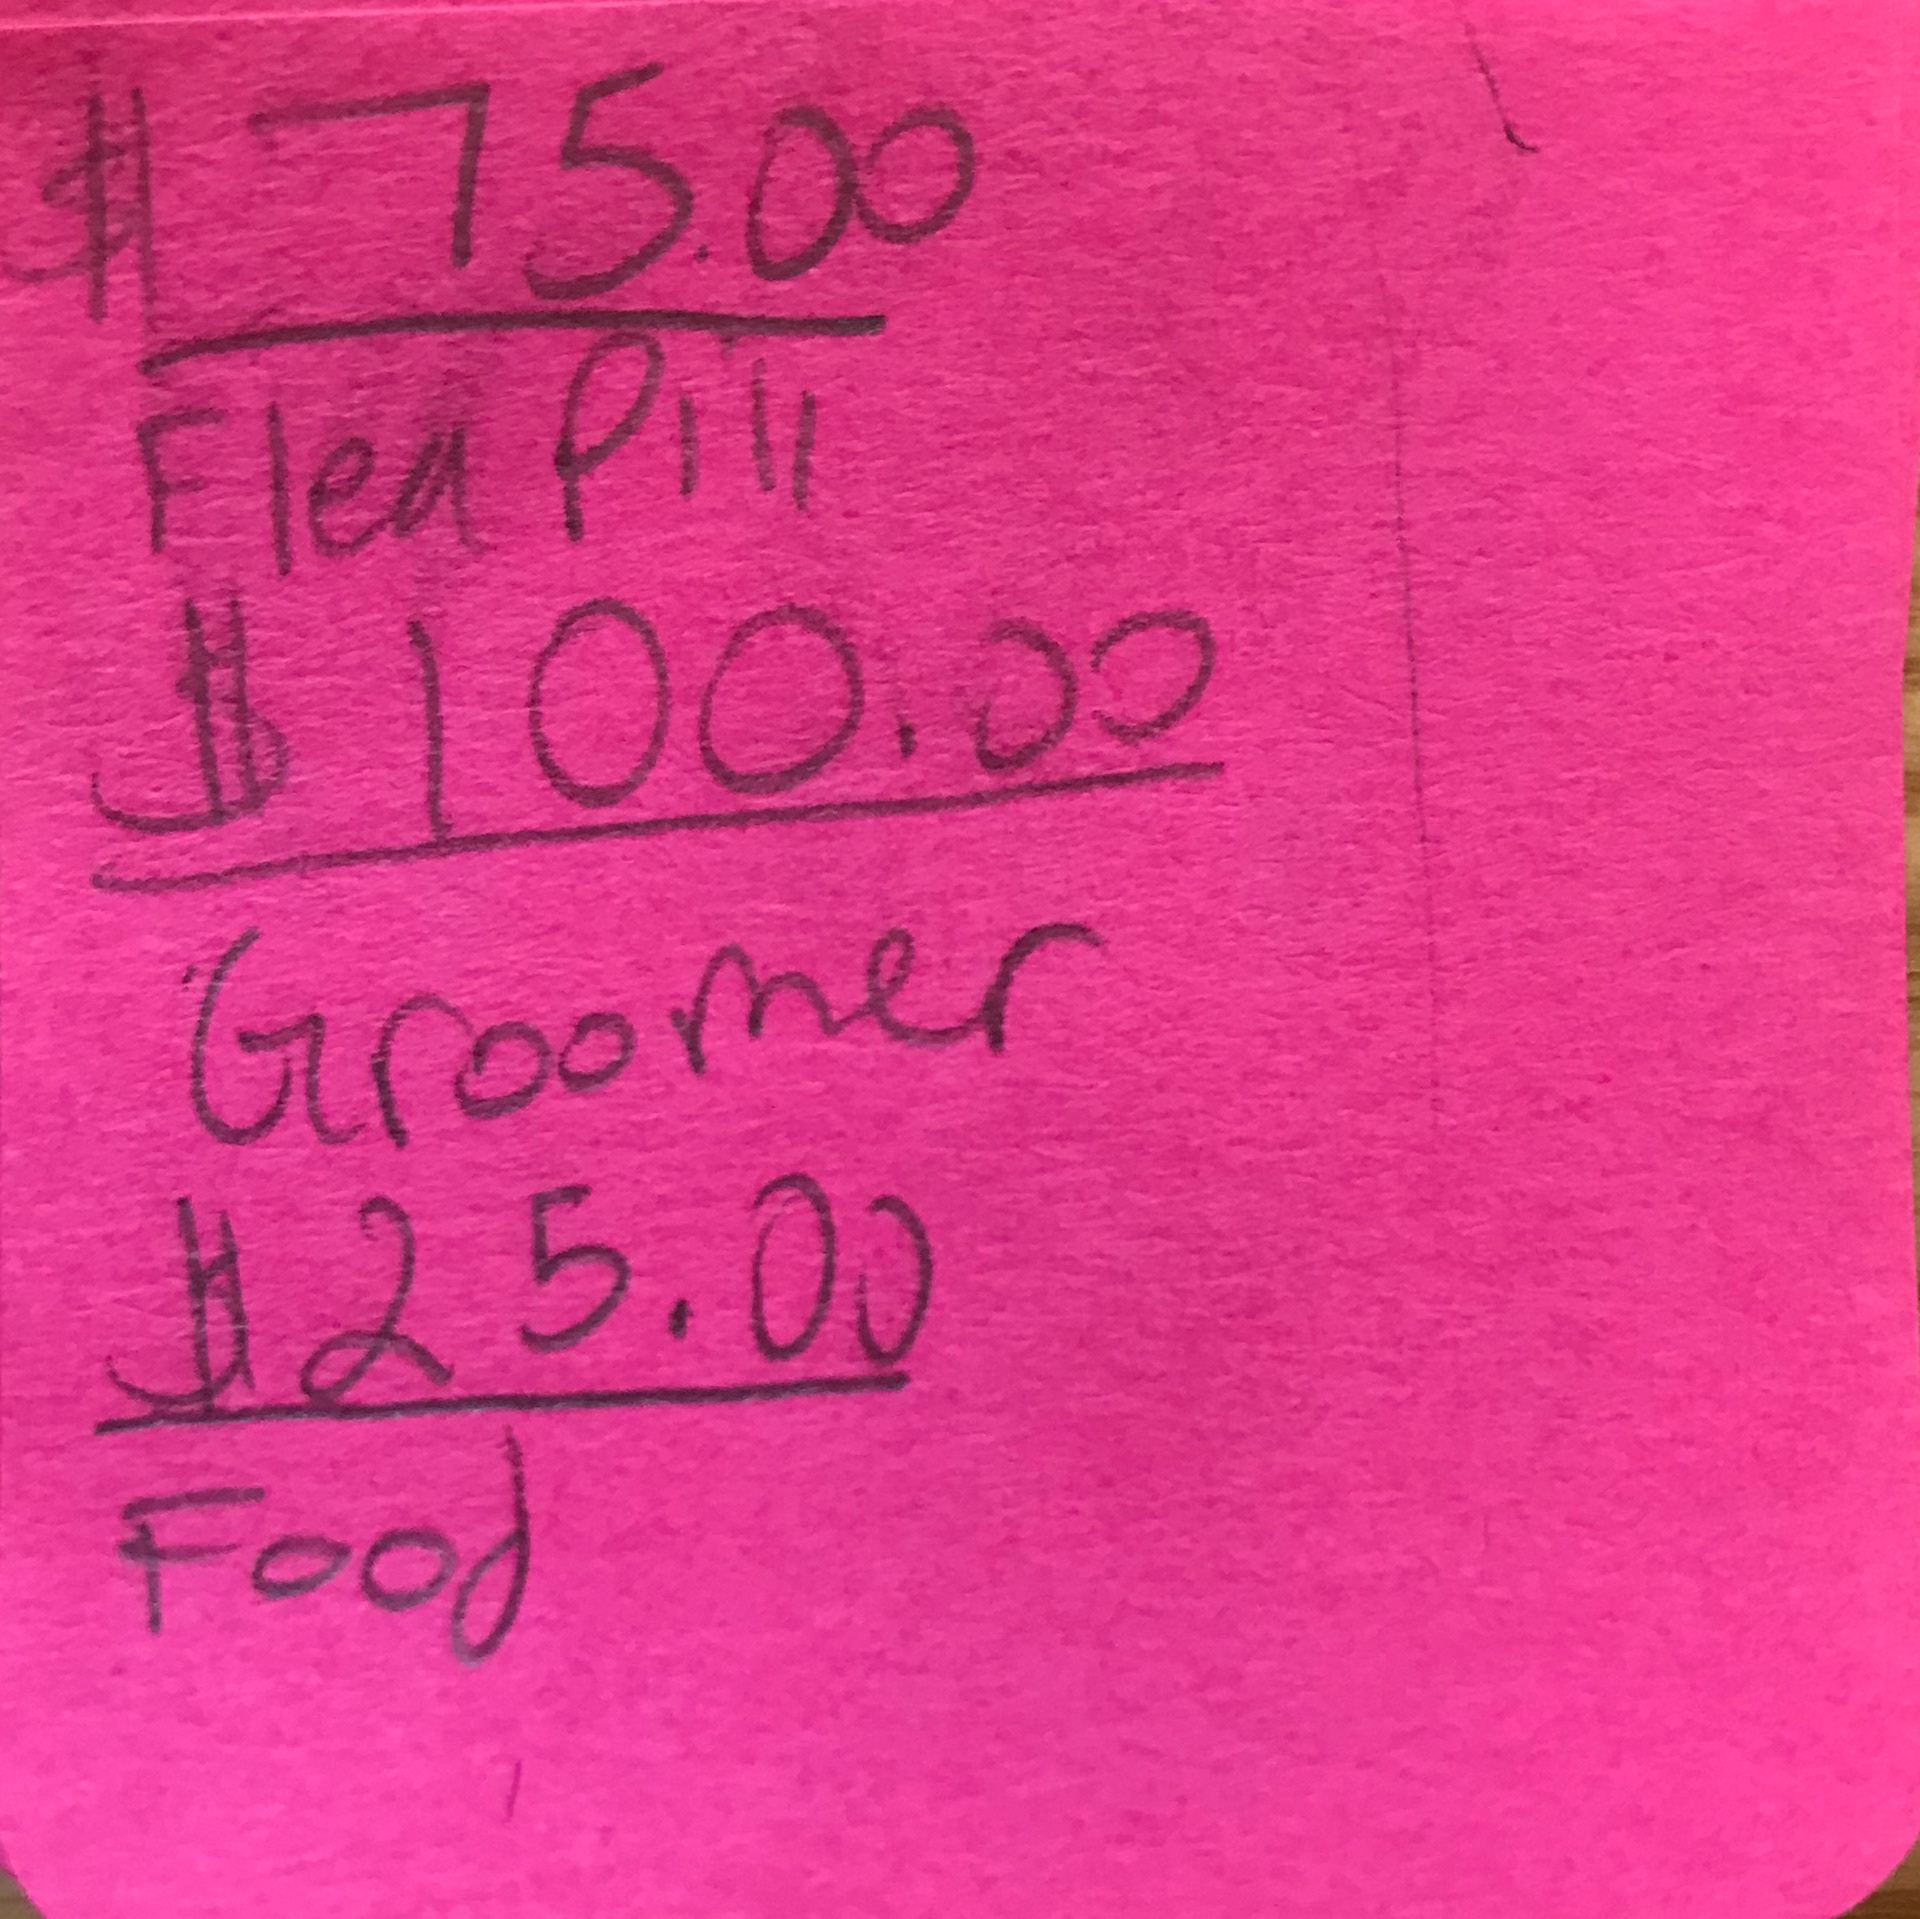 $ 75.00
Flea Pill
$ 100.00
Groomer
$ 25.00
Food